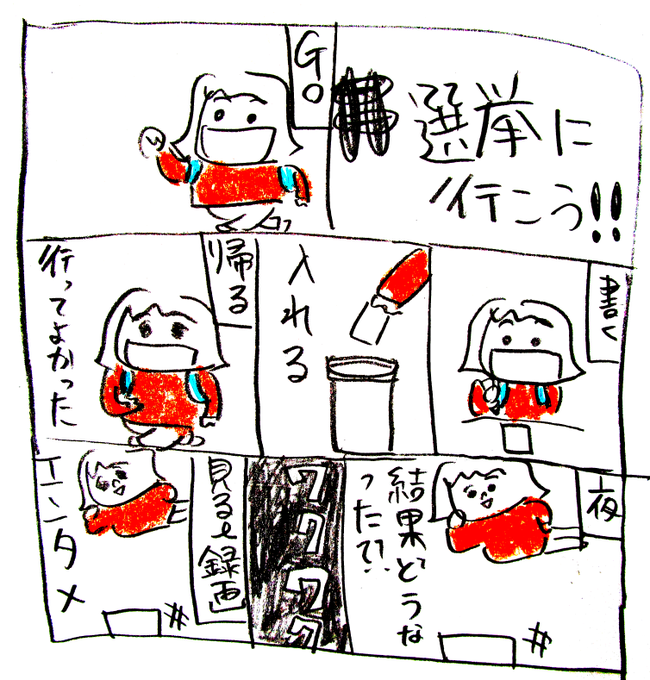 選挙に
行こう!!
GO
書く
入れる
帰る
行ってよかった
夜
結果どうな
った!?
ワワワワ
見る&録画
エンタメ